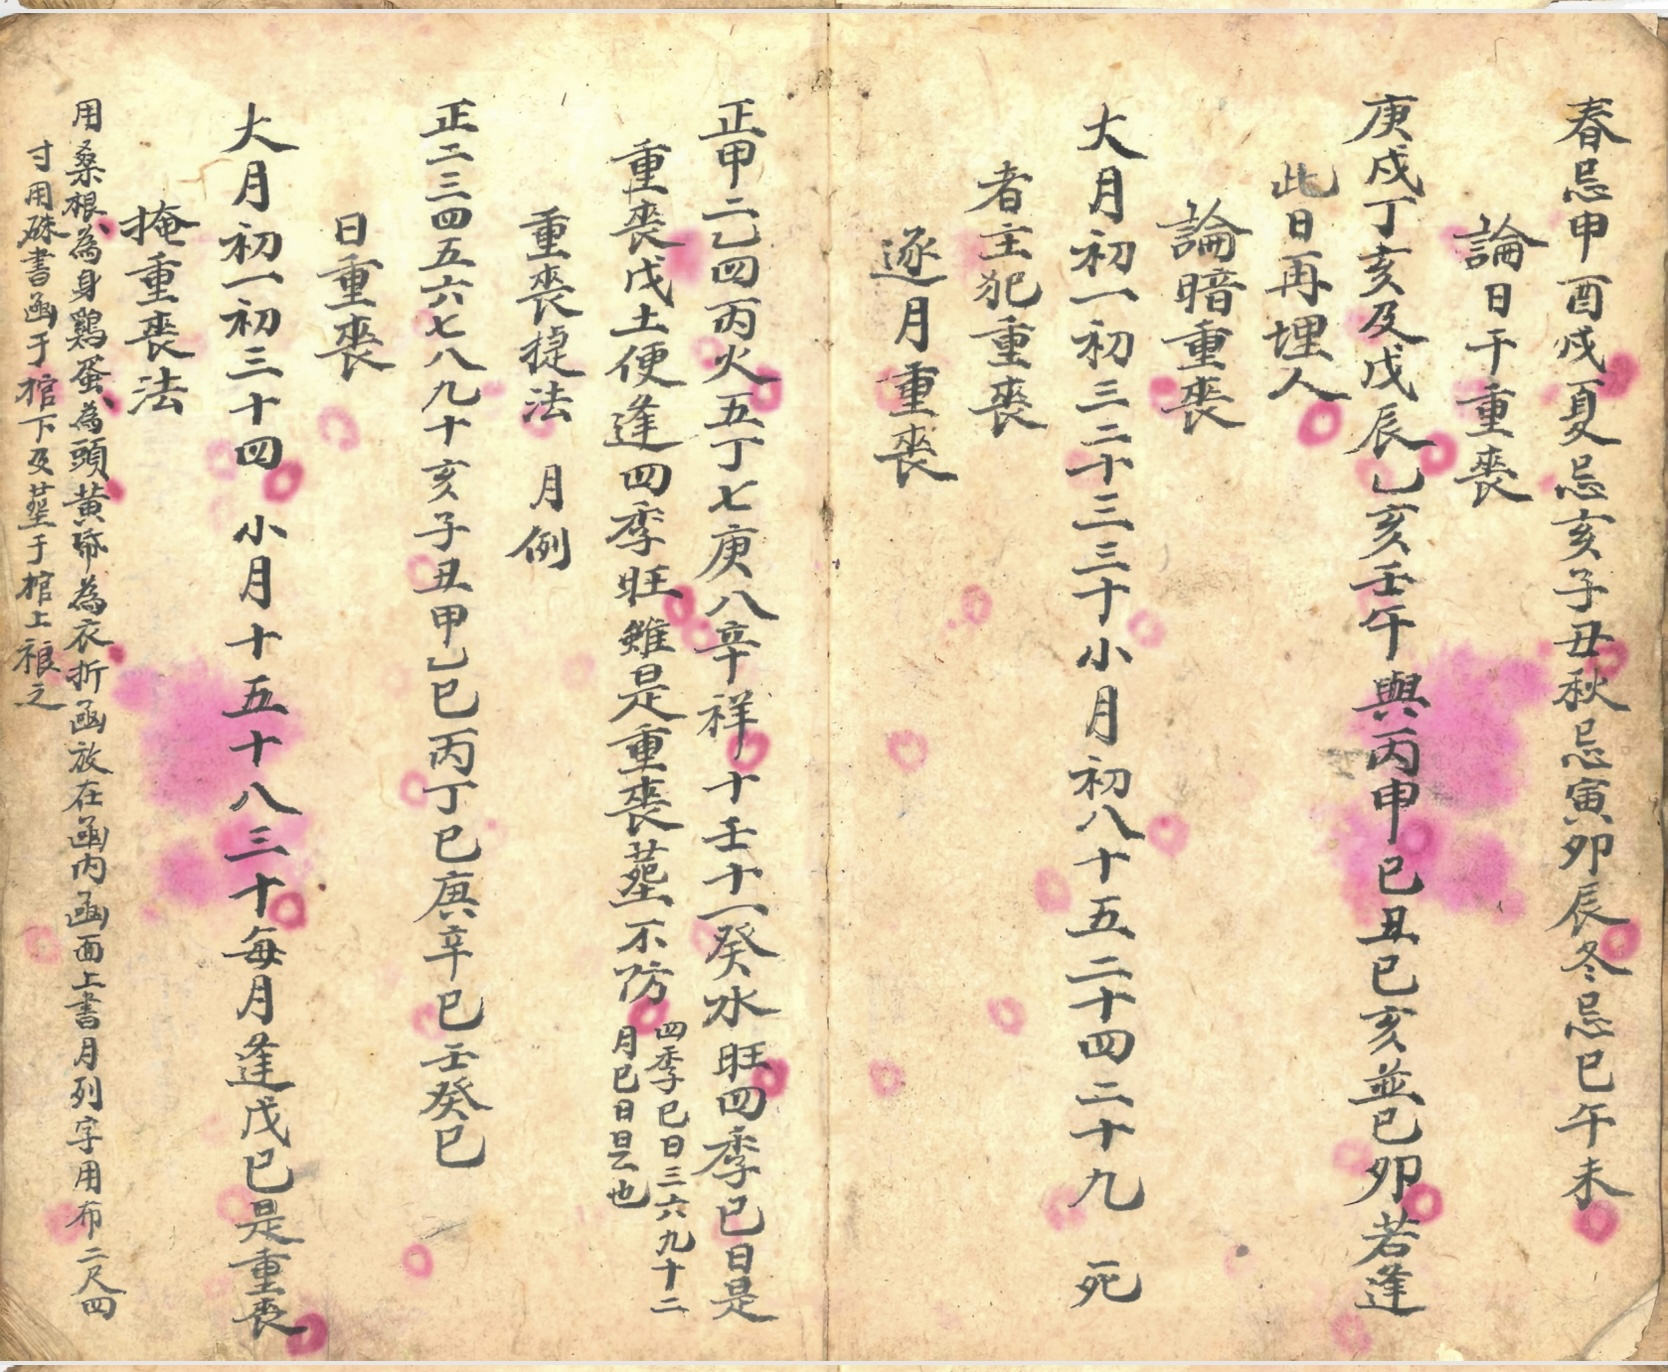 春忌申酉戌夏忌亥子丑秋忌寅卯辰冬忌巳午未
論日干重喪
庚戌丁亥及戊辰乙亥壬午與丙申巳丑巳亥並巳卯若逢
此日再埋人
論暗重喪
大月初一初三二十三三十小月初八十五二十四二十九 死
者主犯重喪
逐月重喪
正甲二乙四丙火五丁七庚八辛祥十壬十一癸水旺四季巳日是
重喪戊土便逢四季旺雖是重喪塟不防
四季巳日三六九十二
月巳日是也
重喪捷法 月例
正二三四五六七八九十亥子丑甲乙巳丙丁巳庚辛巳壬癸巳
日重喪
大月初一初三十四 小月十五十八三十每月逢戊巳是重喪
掩重喪法
用桑根為身鷄蛋為頭黃帋為衣折函放在函内函面上書月列字用布二尺四
寸用硃書函于棺下及塟于棺上禳之